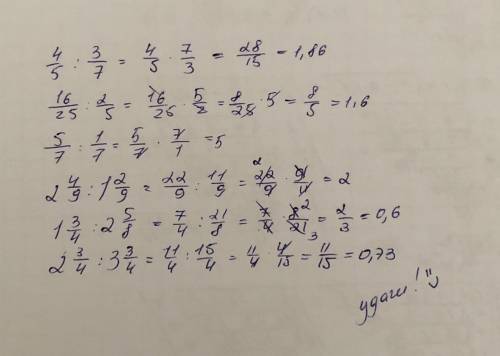 4/5 : 3/7 = 4/5 · 7/3 = 28/15 = 1,86
16/25 : 2/5 = 16/25 · 5/2 = 8/25 · 5 = 8/5 = 1,6
5/7 : 1/7 = 5/7 · 7/1 = 5
2 4/9 : 1 2/9 = 22/9 : 11/9 = 22/9 · 9/11 = 2
1 3/4 : 2 5/8 = 7/4 : 21/8 = 7/4 · 8/21 = 2/3 = 0,6
2 3/4 : 3 3/4 = 11/4 : 15/4 = 11/4 · 4/15 = 11/15 = 0,73
удачи!